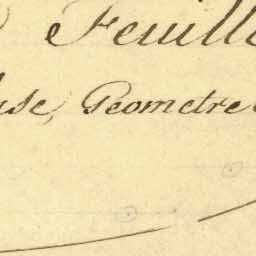 Feuille
use, Géometre